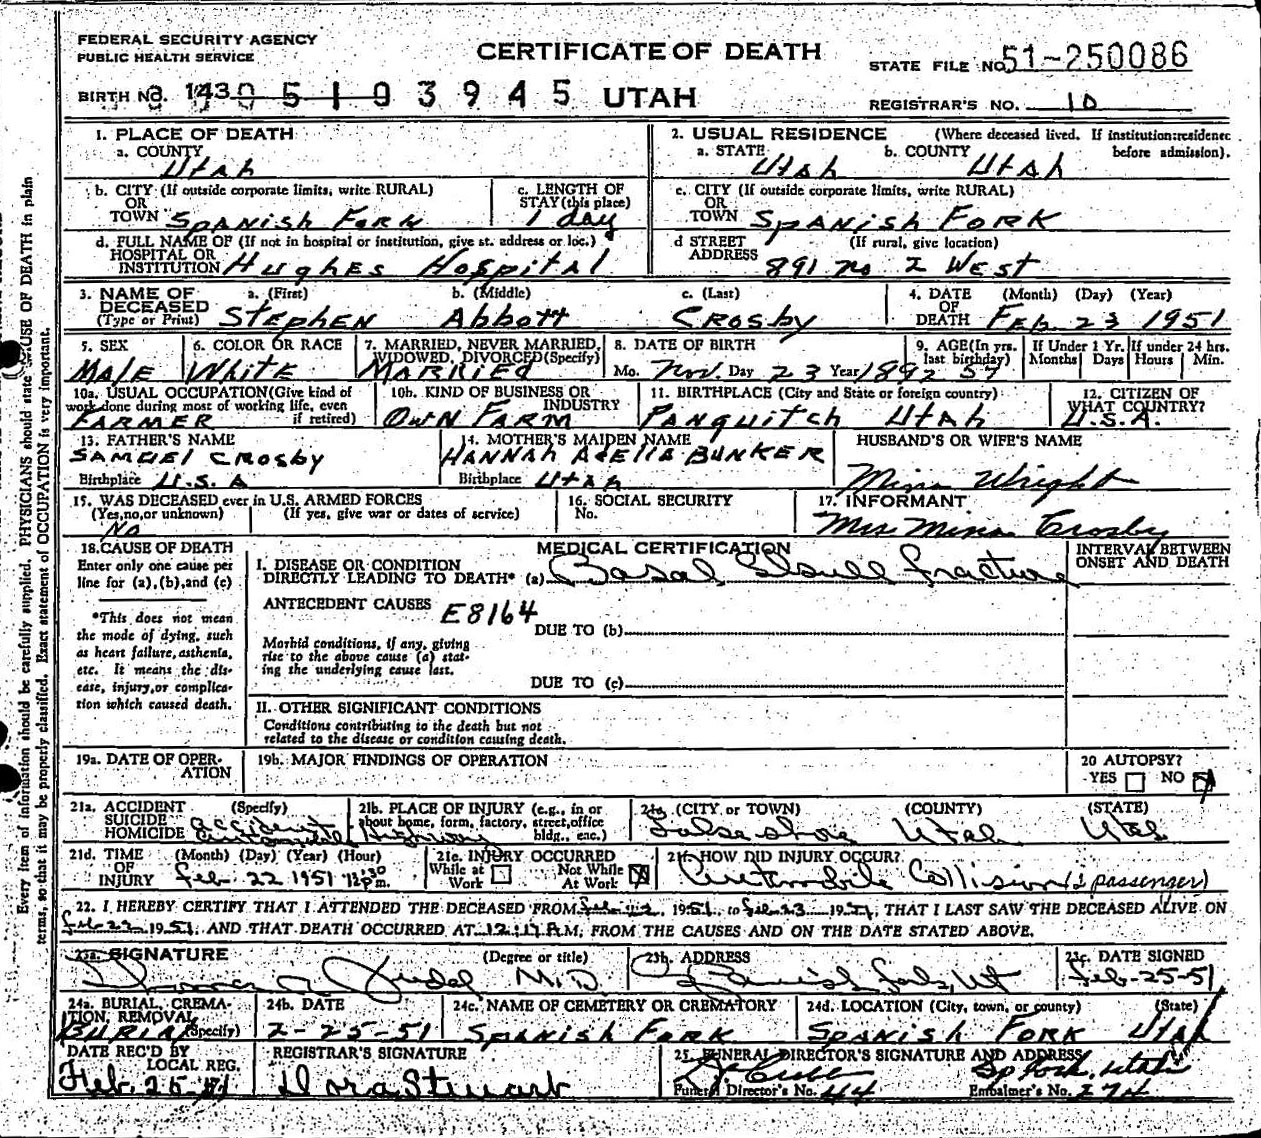 FEDERAL SECURITY AGENCY
PUBLIC HEALTH SERVICE
CERTIFICATE OF DEATH
STATE FILE NO. 51-250086
BIRTH NO. 143 0 5 1 0 3 9 4 5 UTAH
REGISTRAR'S NO. 10
1. PLACE OF DEATH
a. COUNTY
Utah
2. USUAL RESIDENCE (Where deceased lived. If institution:residence before admission).
a. STATE Utah b. COUNTY Utah
b. CITY (If outside corporate limits, write RURAL)
OR
TOWN Spanish Fork
c. LENGTH OF
STAY (this place)
1 day
c. CITY (If outside corporate limits, write RURAL)
OR
TOWN Spanish Fork
d. FULL NAME OF (If not in hospital or institution, give st. address or loc.)
HOSPITAL OR
INSTITUTION Hughes Hospital
d STREET (If rural, give location)
ADDRESS 891 No 2 West
3. NAME OF DECEASED
(Type or Print)
a. (First) Stephen
b. (Middle) Abbott
c. (Last) Crosby
4. DATE OF DEATH (Month) (Day) (Year)
Feb. 23 1951
5. SEX
Male
6. COLOR OR RACE
White
7. MARRIED, NEVER MARRIED,
WIDOWED, DIVORCED(Specify)
MARRIED
8. DATE OF BIRTH
Mo. Nov. Day 23 Year 1892
9. AGE(In yrs. last birthday)
If Under 1 Yr. Months Days
If under 24 hrs. Hours Min.
10a. USUAL OCCUPATION(Give kind of
work done during most of working life, even
if retired)
FARMER
10b. KIND OF BUSINESS OR
INDUSTRY
Own FARM
11. BIRTHPLACE (City and State or foreign country)
Panguitch Utah
12. CITIZEN OF
WHAT COUNTRY?
U.S.A.
13. FATHER'S NAME
SAMUEL CROSBY
Birthplace U.S.A
14. MOTHER'S MAIDEN NAME
HANNAH ADELIA BUNKER
Birthplace Utah
HUSBAND'S OR WIFE'S NAME
Mina Wright
15. WAS DECEASED ever in U.S. ARMED FORCES
(Yes,no,or unknown) (If yes, give war or dates of service)
No
16. SOCIAL SECURITY
No.
17. INFORMANT
Mrs Mina Crosby
18. CAUSE OF DEATH
Enter only one cause per
line for (a),(b),and (c)
*This does not mean
the mode of dying, such
as heart failure, asthenia,
etc. It means the dis-
ease, injury, or complica-
tion which caused death.
MEDICAL CERTIFICATION
INTERVAL BETWEEN
ONSET AND DEATH
I. DISEASE OR CONDITION
DIRECTLY LEADING TO DEATH* (a) Basal Skull fracture
ANTECEDENT CAUSES E8164
DUE TO (b)
Morbid conditions, if any, giving
rise to the above cause (a) stat-
ing the underlying cause last.
DUE TO (c)
II. OTHER SIGNIFICANT CONDITIONS
Conditions contributing to the death but not
related to the disease or condition causing death.
19a. DATE OF OPER-
ATION
19b. MAJOR FINDINGS OF OPERATION
20 AUTOPSY?
YES NO
21a. ACCIDENT (Specify)
SUICIDE
HOMICIDE
accident
automobile
21b. PLACE OF INJURY (e.g., in or
about home, form, factory, street,office
bldg., enc.)
Highway
21c. (CITY or TOWN) (COUNTY) (STATE)
Utah Utah
21d. TIME OF INJURY (Month) (Day) (Year) (Hour)
Feb. 22 1951
21e. INJURY OCCURRED
While at Work Not While At Work
21f. HOW DID INJURY OCCUR?
Automobile Collision (passenger)
22. I HEREBY CERTIFY THAT I ATTENDED THE DECEASED FROM Feb. 22, 1951, to Feb 23 1951, THAT I LAST SAW THE DECEASED ALIVE ON
1951, AND THAT DEATH OCCURRED AT 12:17 AM, FROM THE CAUSES AND ON THE DATE STATED ABOVE.
23a. SIGNATURE (Degree or title)
M.D.
23b. ADDRESS
Spanish Fork, Ut
23c. DATE SIGNED
Feb-25-51
24a. BURIAL, CREMA-
TION, REMOVAL
(Specify)
BURIAL
24b. DATE
2-25-51
24c. NAME OF CEMETERY OR CREMATORY
Spanish Fork
24d. LOCATION (City, town, or county) (State)
Spanish Fork Utah
DATE REC'D BY
LOCAL REG.
Feb. 25
REGISTRAR'S SIGNATURE
Dora Stewart
25. FUNERAL DIRECTOR'S SIGNATURE AND ADDRESS
Sp Fork, Utah
Funeral Director's No. 44 Embalmer's No. 274
Every item of information should be carefully supplied. PHYSICIANS should state CAUSE OF DEATH in plain
terms, so that it may be properly classified. Exact statement of OCCUPATION is very important.